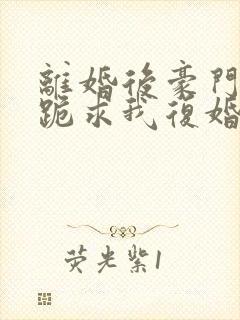 離婚後豪門
跪求我復婚
荧光紫1